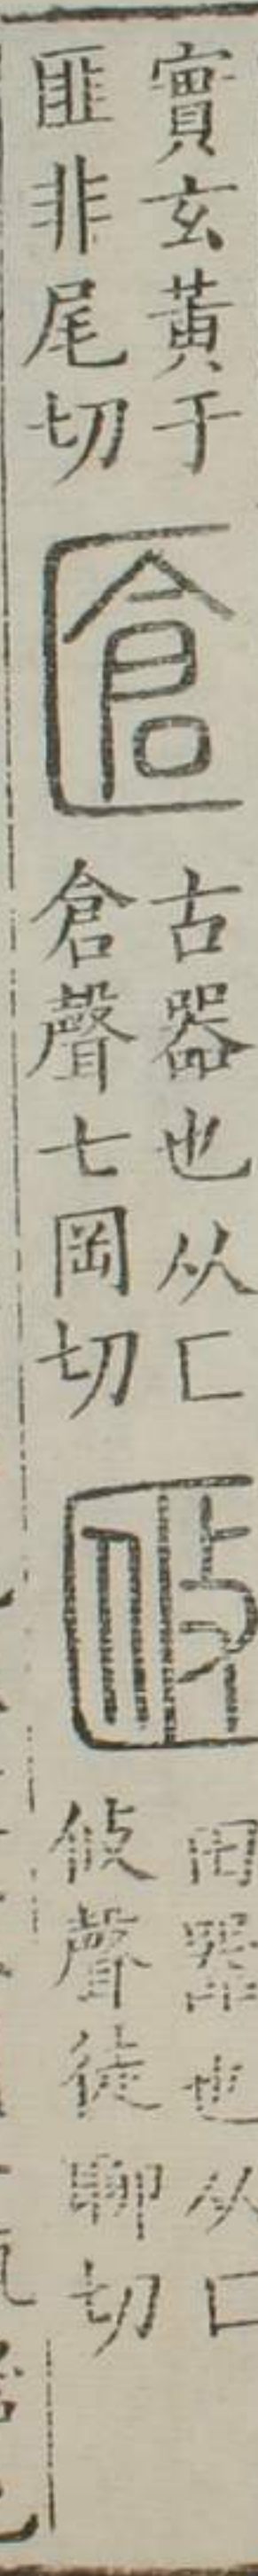 實玄黃于
匪非尾切
匫
古器也从匚
倉聲七岡切
𠥉
田器也从匚
攸聲徒聊切